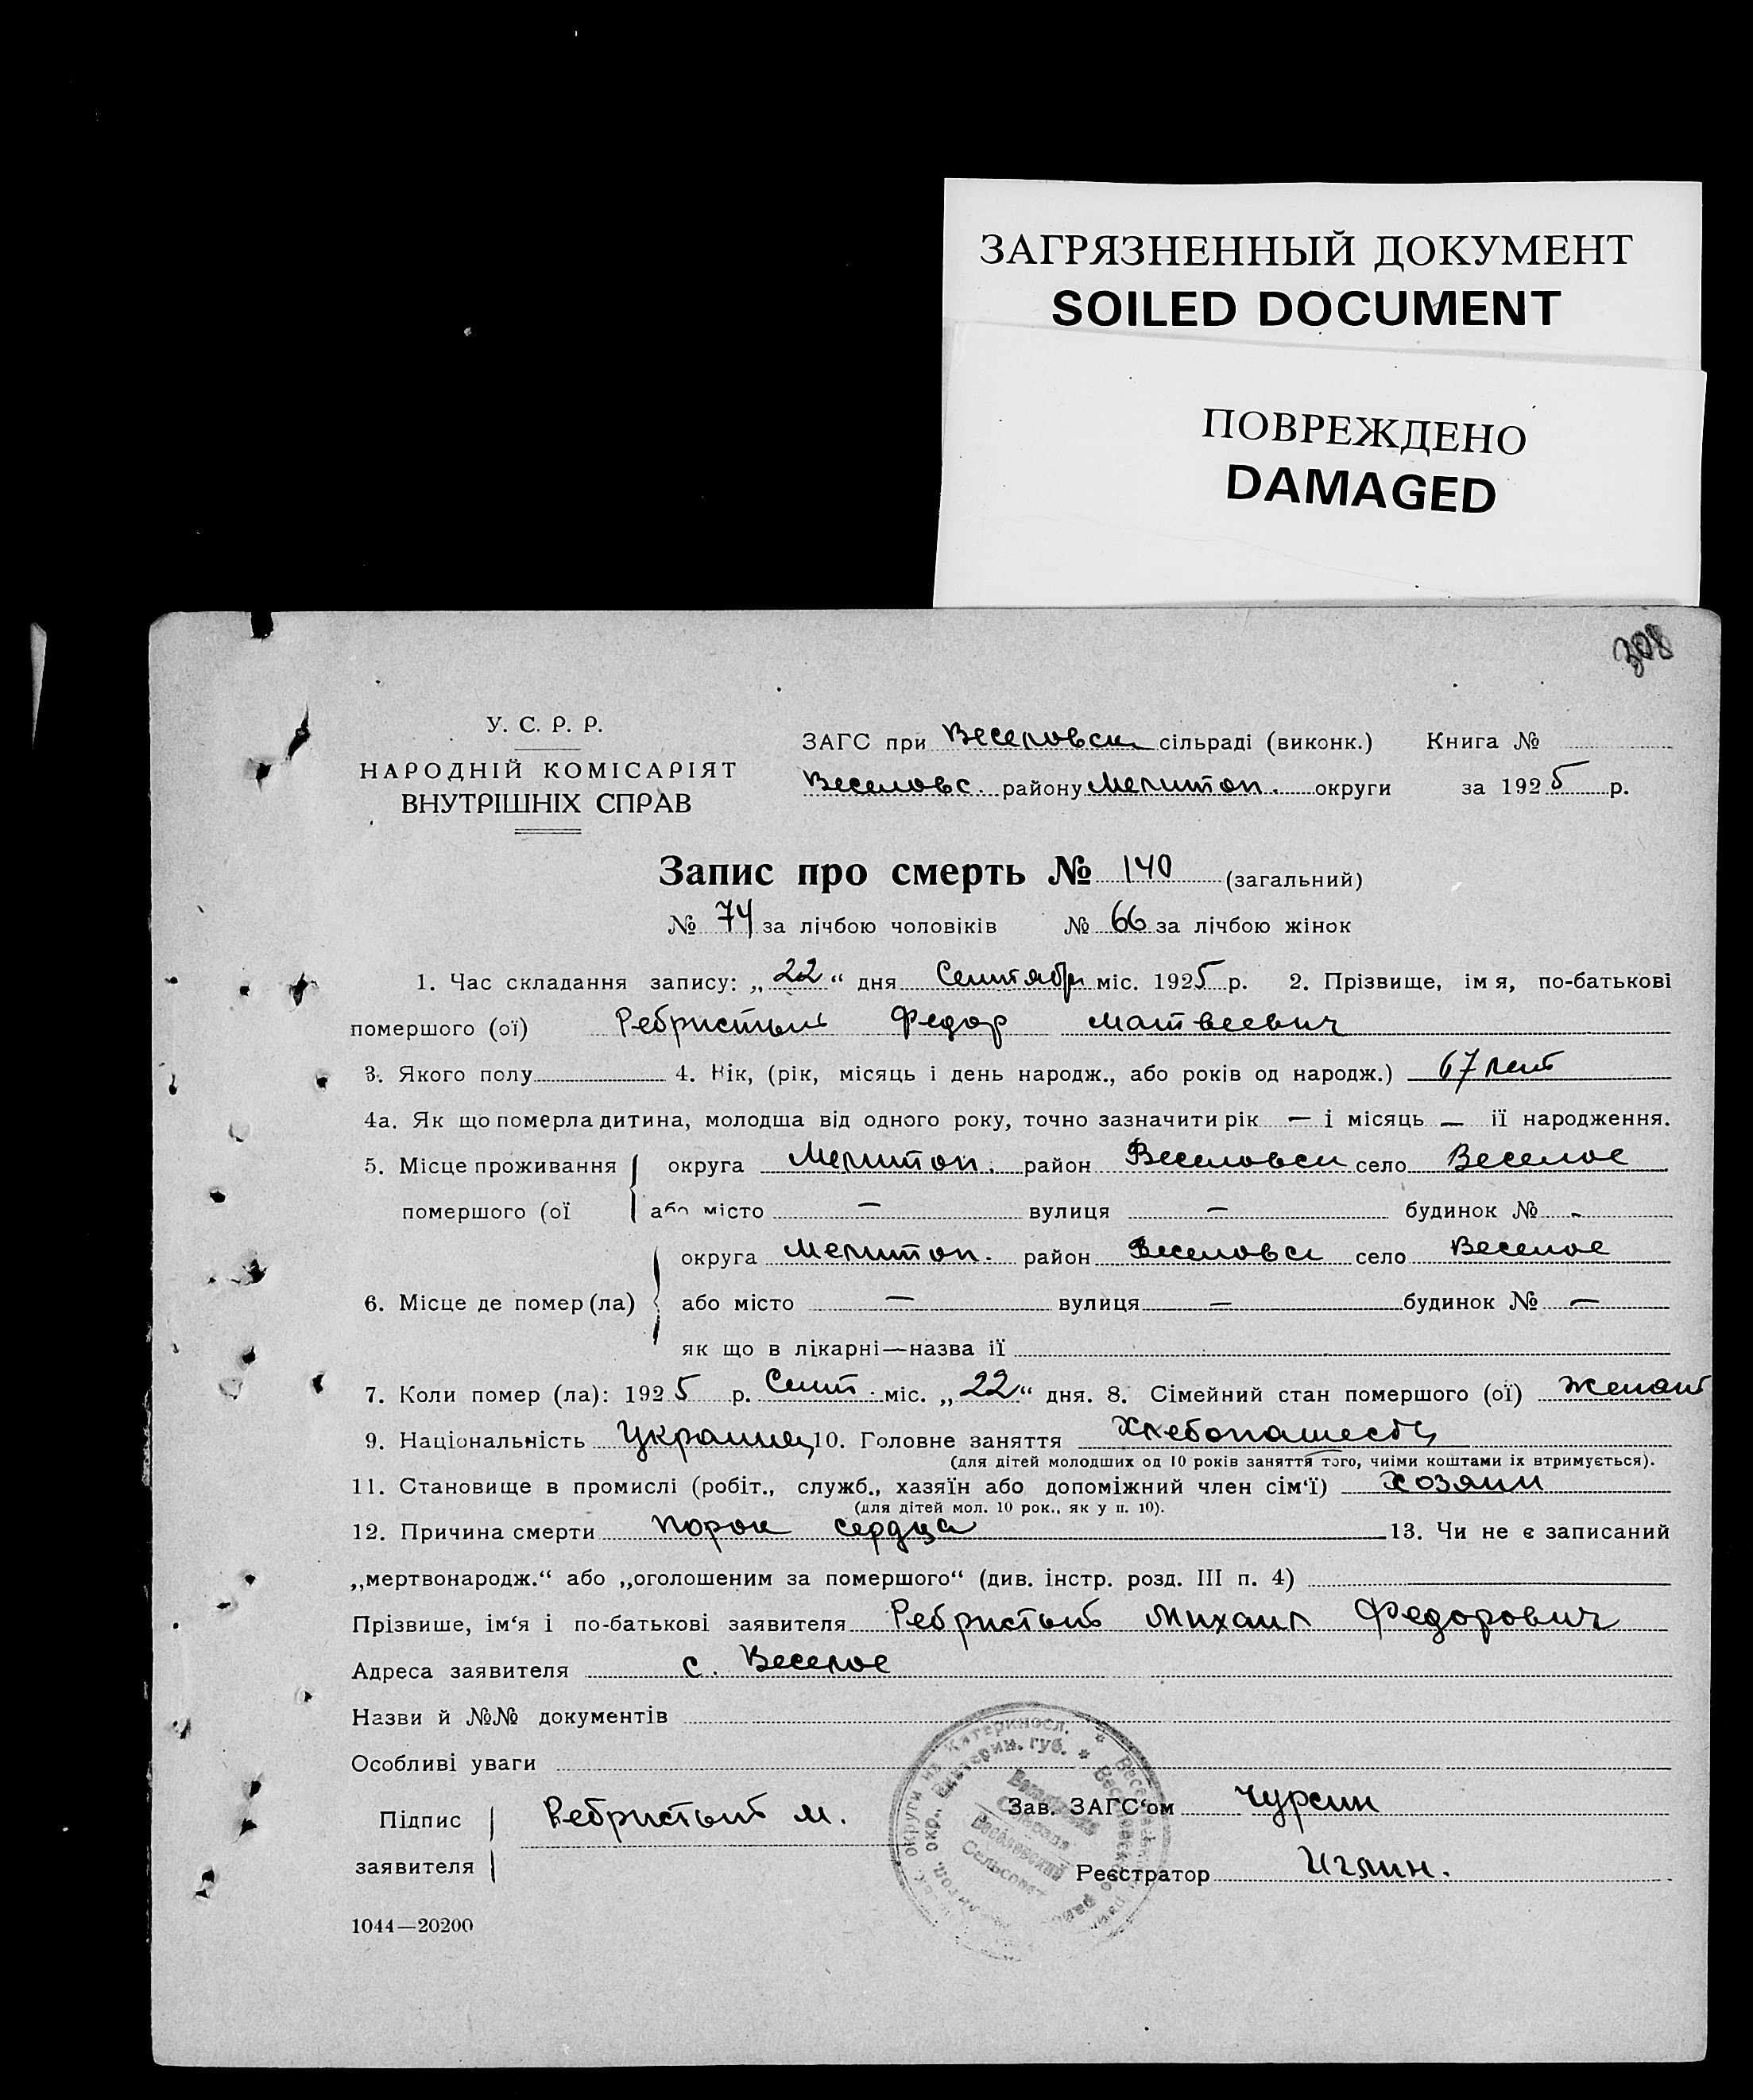 ЗАГРЯЗНЕННЫЙ ДОКУМЕНТ
SOILED DOCUMENT
ПОВРЕЖДЕНО
DAMAGED
308
У. С. Р. Р.
НАРОДНІЙ КОМІСАРІЯТ
ВНУТРІШНІХ СПРАВ
ЗАГС при Веселовск сільраді (виконк.) Книга №
Веселовс. району Мелитоп. округи за 1925 р.
Запис про смерть № 140 (загальний)
№ 74 за лічбою чоловіків № 66 за лічбою жінок
1. Час складання запису: „22“ дня Сентябр міс. 1925 р. 2. Прізвище, імя, по-батькові
помершого (ої) Ребристый Федор Матвеевич
3. Якого полу 4. Вік, (рік, місяць і день народж., або років од народж.) 67 лет
4а. Як що померла дитина, молодша від одного року, точно зазначити рік — і місяць — її народження.
5. Місце проживання округа Мелитоп. район Веселовск село Веселое
помершого (ої або місто — вулиця — будинок № -
округа Мелитоп. район Веселовск село Веселое
6. Місце де помер (ла) або місто — вулиця — будинок № —
як що в лікарні—назва ії
7. Коли помер (ла): 1925 р. Сент. міс. „22“ дня. 8. Сімейний стан помершого (ої) женат
9. Національність Украинец 10. Головне заняття Хлебопашеств
(для дітей молодших од 10 років заняття того, чиїми коштами їх втримується).
11. Становище в промислі (робіт., служб., хазяїн або допоміжний член сім‘ї) хозяин
(для дітей мол. 10 рок., як у п. 10).
12. Причина смерти порок сердца 13. Чи не є записаний
„мертвонародж.“ або „оголошеним за помершого“ (див. інстр. розд. III п. 4)
Прізвише, ім‘я і по-батькові заявителя Ребристый Михаил Федорович
Адреса заявителя с. Веселое
Назви й №№ документів
Особливі уваги
Підпис Ребристый М. Зав. ЗАГС‘ом Чурсин
заявителя Реєстратор Иглин.
Веселовский
Сельсовет
1044—20200